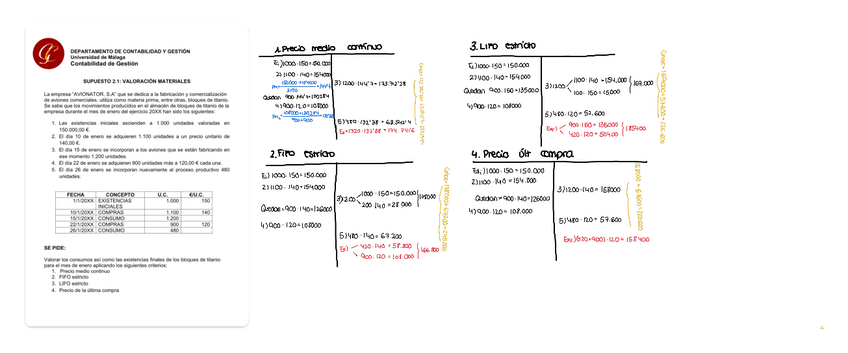 DEPARTAMENTO DE CONTABILIDAD Y GESTIÓN
Universidad de Málaga
Contabilidad de Gestión
SUPUESTO 2.1: VALORACIÓN MATERIALES
La empresa "AVIONATOR, S.A" que se dedica a la fabricación y comercialización
de aviones comerciales, utiliza como materia prima, entre otras, bloques de titanio.
Se sabe que los movimientos producidos en el almacén de bloques de titanio de la
empresa durante el mes de enero del ejercicio 20XX han sido los siguientes:
1. Las existencias iniciales ascienden a 1.000 unidades valoradas en
150.000,00 €.
2. El día 10 de enero se adquieren 1.100 unidades a un precio unitario de
140,00 €.
3. El día 15 de enero se incorporan a los aviones que se están fabricando en
ese momento 1.200 unidades.
4. El día 22 de enero se adquieren 900 unidades más a 120,00 € cada una.
5. El día 26 de enero se incorporan nuevamente al proceso productivo 480
unidades.
FECHA CONCEPTO U.C. €/U.C.
1/1/20XX EXISTENCIAS INICIALES 1.000 150
10/1/20XX COMPRAS 1.100 140
15/1/20XX CONSUMO 1.200
22/1/20XX COMPRAS 900 120
26/1/20XX CONSUMO 480
SE PIDE:
Valorar los consumos así como las existencias finales de los bloques de titanio
para el mes de enero aplicando los siguientes criterios:
1. Precio medio continuo
2. FIFO estricto
3. LIFO estricto
4. Precio de la última compra
1. Precio medio continuo
Ei) 1000·150=150.000
2) 1100·140=154000
Quedan 900
4) 900·120=108000
2. FIFO estricto
Ei) 1000·150=150.000
2) 1100·140=154.000
3) 1200
1000·150=150.000
200·140=28.000
Quedan: 900·140=126000
4) 900·120=108.000
5) 480·140=67.200
420·140=58.800
900·120=108000
166.800
3. LIFO estricto
Ei) 1000·150=150.000
3) 1200
1100·140=154.000
100·150=15.000
169.000
Quedan 900·150=135000
4) 900·120=108000
5) 480·120=57.600
420·120=50400
185400
4. Precio últ compra
Ei) 1000·150=150.000
2) 1100·140=154.000
3) 1200·140=168000
Quedan = 900·140=126000
4) 900·120=108.000
5) 480·120=57.600